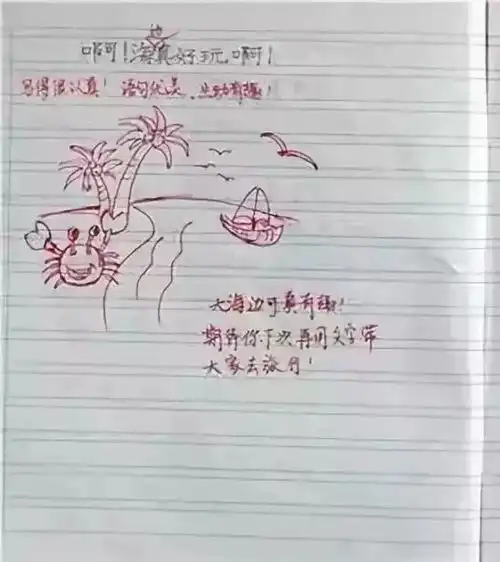 边
啊！海真好玩，啊！
写得很认真！语句优美、生动有趣！
大海边可真有趣！
期待你下次再用文字带
大家去旅行！